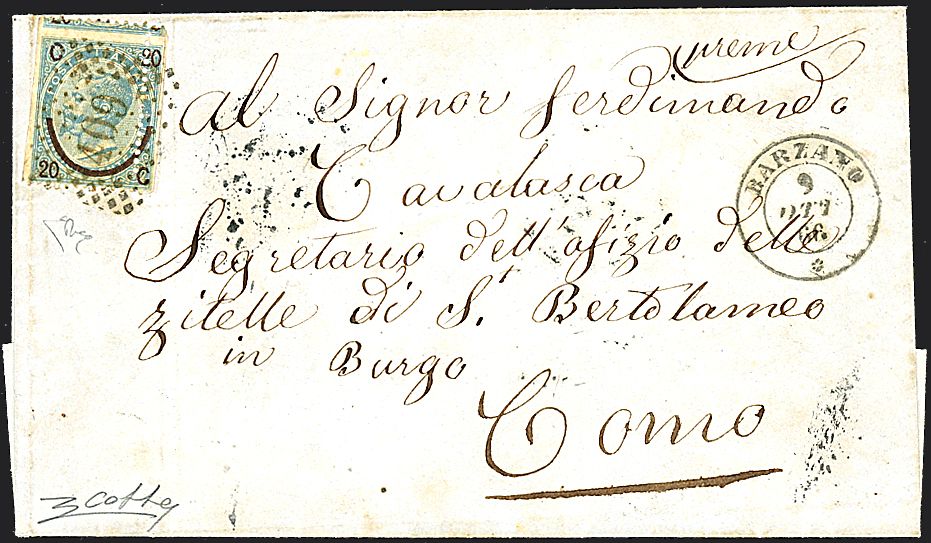 20 C
C 20
POSTE
20 C
609
preme
Al Signor Ferdinando
Cavalasca
BARZANO
9
OTT
66
Segretario dell' ofizio delle
zitelle di S.t Bertolameo
in Burgo
Como